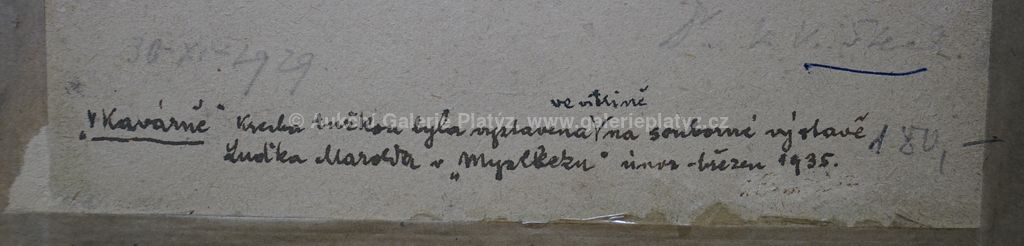 30-XI-1929.
Dr.
ve vitrině
„V Kavárně" Kresba tužkou byla vystavena na souborné výstavě
Luďka Marolda v „Myslbeku" únor-březen 1935.
180,—
© Aukční Galerie Platýz, www.galerieplatyz.cz